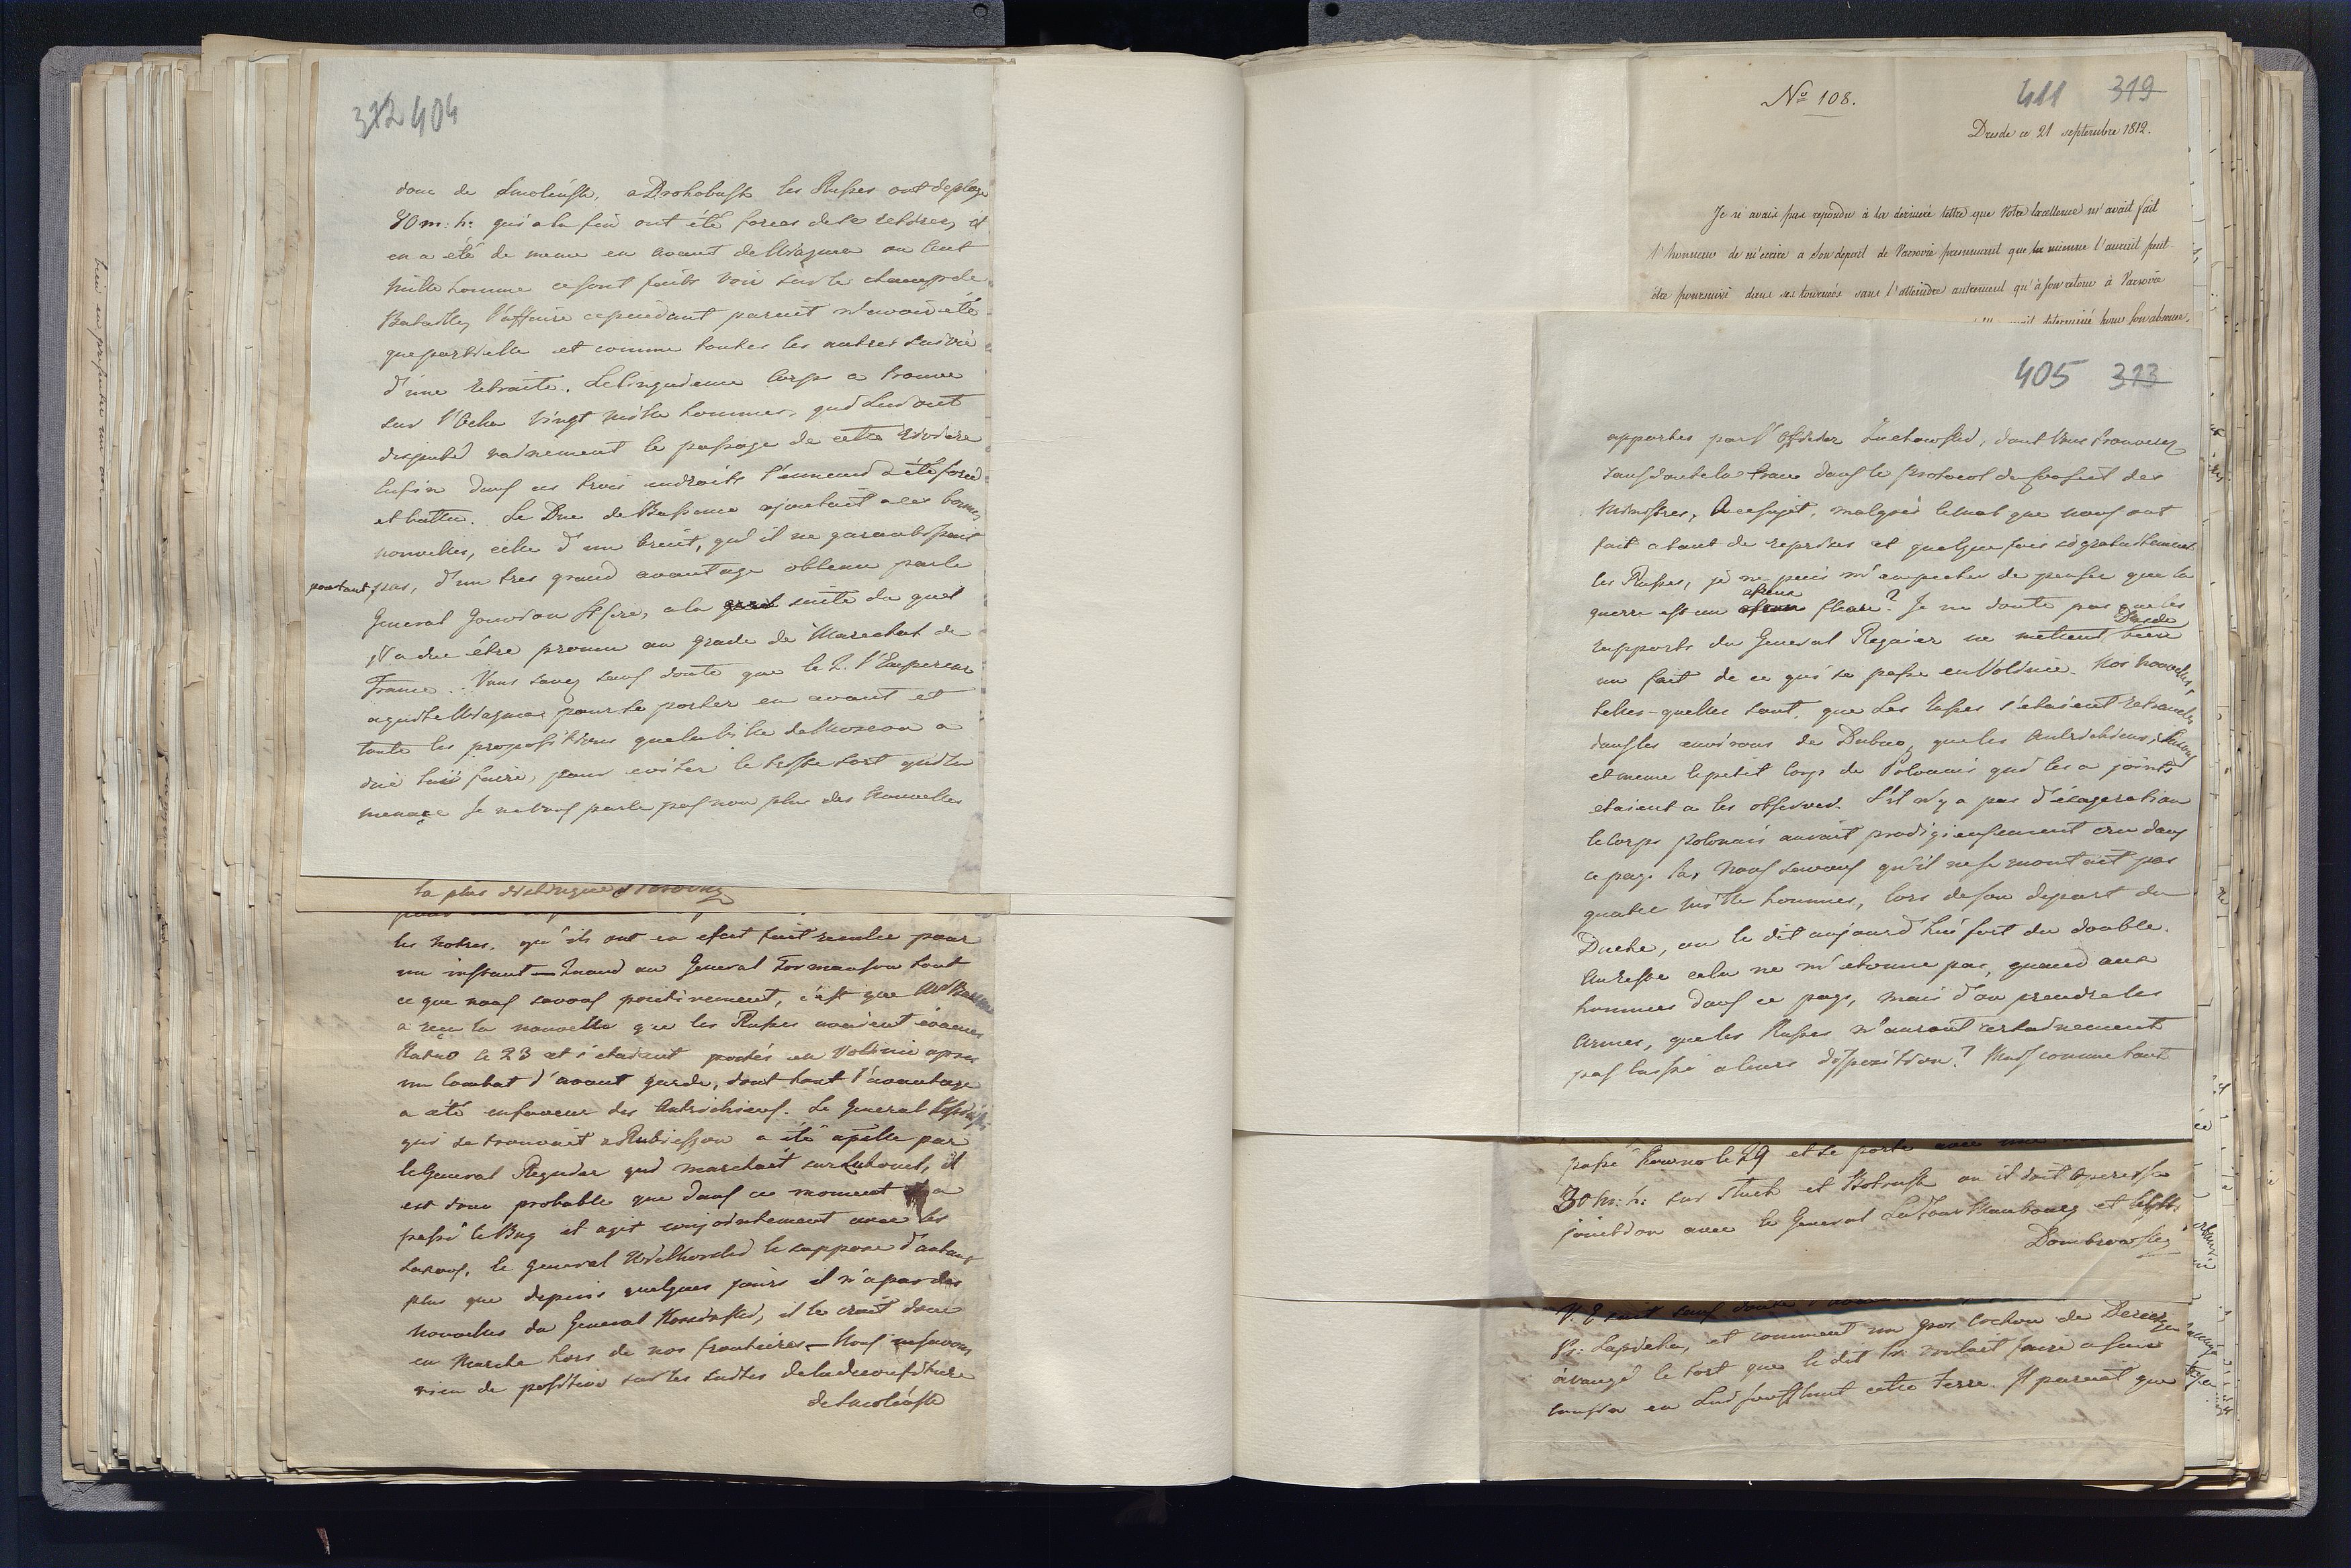 312 404
donc de Smolensk, a Drohobusk les Russes ont deploye
70 m: h: qui a la fin ont été forces de se retirer, il
en a été de meme en avant de Wiazma ou Cent
mille homme ce sont faits voir sur le champ de
Bataille, l'affaire cependant parait n'avoir été
que partielle et comme toutes les autres suivie
d'une retraite. Le Cinquieme Corps a trouve
sur l'Ocka Vingt mille hommes, qui lui ont
disputé vainement le passage de cette riviere
Enfin dans ces trois endroits l'ennemi a été forcé
et battu. Le Duc de Bassano ajoutait a ces bonnes
nouvelles, celle d'un bruit, qu'il ne garantissait
pourtant pas, d'un tres grand avantage obtenu par le
General Gouvion St Cire, a la suite du quel
il a du être promu au grade de Marechal de
France. Vous savez sans doute que le 2. l'Empereur
a quitté Wiazma pour se porter en avant et
toute les propositions que la Ville de Moscou a
du lui faire, pour eviter le triste sort qui la
menace Je ne vous parle pas non plus des Nouvelles
la plus distinguée
les notres. qu'ils ont en efect fait reculer pour
un instant — Quand au General Tormansow tout
ce que nous savons positivement, c'est que Mr
a reçu la nouvelle que les Russes avaient évacués
Ratno le 23 et s'etaient portés en Volinie apres
un Combat d'avant garde, dont tout l'avantage
a été en faveur des Autrichiens. Le General
qui se trouvait a Rubieszow a été apelle par
le General Regnier qui marchait sur Luboml, il
est donc probable que dans ce moment il a
passé le Bug et agit conjointement avec les
Saxons, le General Wielhorski le suppose d'autant
plus que depuis quelques jours il n'a pas des
nouvelles du General Kossinski, il le croit donc
en Marche hors de nos frontieres — Nous ne savons
rien de positive sur les suites de la deconfiture
de Smolensk
No 108.
411 319
Dresde ce 21 septembre 1812.
Je n'avais pas repondu à la derniere lettre que Votre Excellence m'avait fait
l'honneur de m'ecrire a son depart de Varsovie presumant que la mienne l'aurait peut-
être poursuivi dans ses tournées sans l'atteindre autrement qu'à son retour à Varsovie
determiné hors son absence,
405 313
apportes par l'Officier Suchowski, dont Vous trouverez
sans doute la trace dans le protocol du Conseil des
Ministres, A ce sujet, malgrés le mal que nous ont
fait a tant de reprises et quelque fois si gratuitement
les Russes, je ne puis m'empecher de penser que la
guerre est un fleau? Je ne doute pas que les
rapports du General Regnier ne mettent Dresde bien
au fait de ce qui se passe en Volinie. Nos nouvelles,
telles-quelles sont, que les Russes s'etaient retranchés
dans les environs de Dubno, que les Autrichiens, Saxons
et meme le petit Corps de Polonais qui les a joints
etaient a les observer. S'il n'y a pas d'exageration
le Corps Polonais aurait prodigieusement cru dans
ce pays la, Nous savons qu'il ne se montait pas
quatre mille hommes, lors de son depart du
Duché, on le dit aujourd'hui fort du double.
Au reste cela ne m'etonne pas, quand aux
hommes dans ce pays, mais d'ou prendre les
Armes, que les Russes n'auront certainement
pas laissé a leurs disposition? Mais comme tout
passé Kowno le 29 et se porte avec une
30 m: h: sur Sluck et Bobruisk ou il doit operer sa
jonction avec le General LaTour Maubourg et
Dombrowski
V. E. sait sans doute
Pr: Sapieha, et comment un gros cochon de Derecze
a vangé le tort que le dit Pr: voulait faire a son
cousin en lui soufflant cette terre. Il parait que